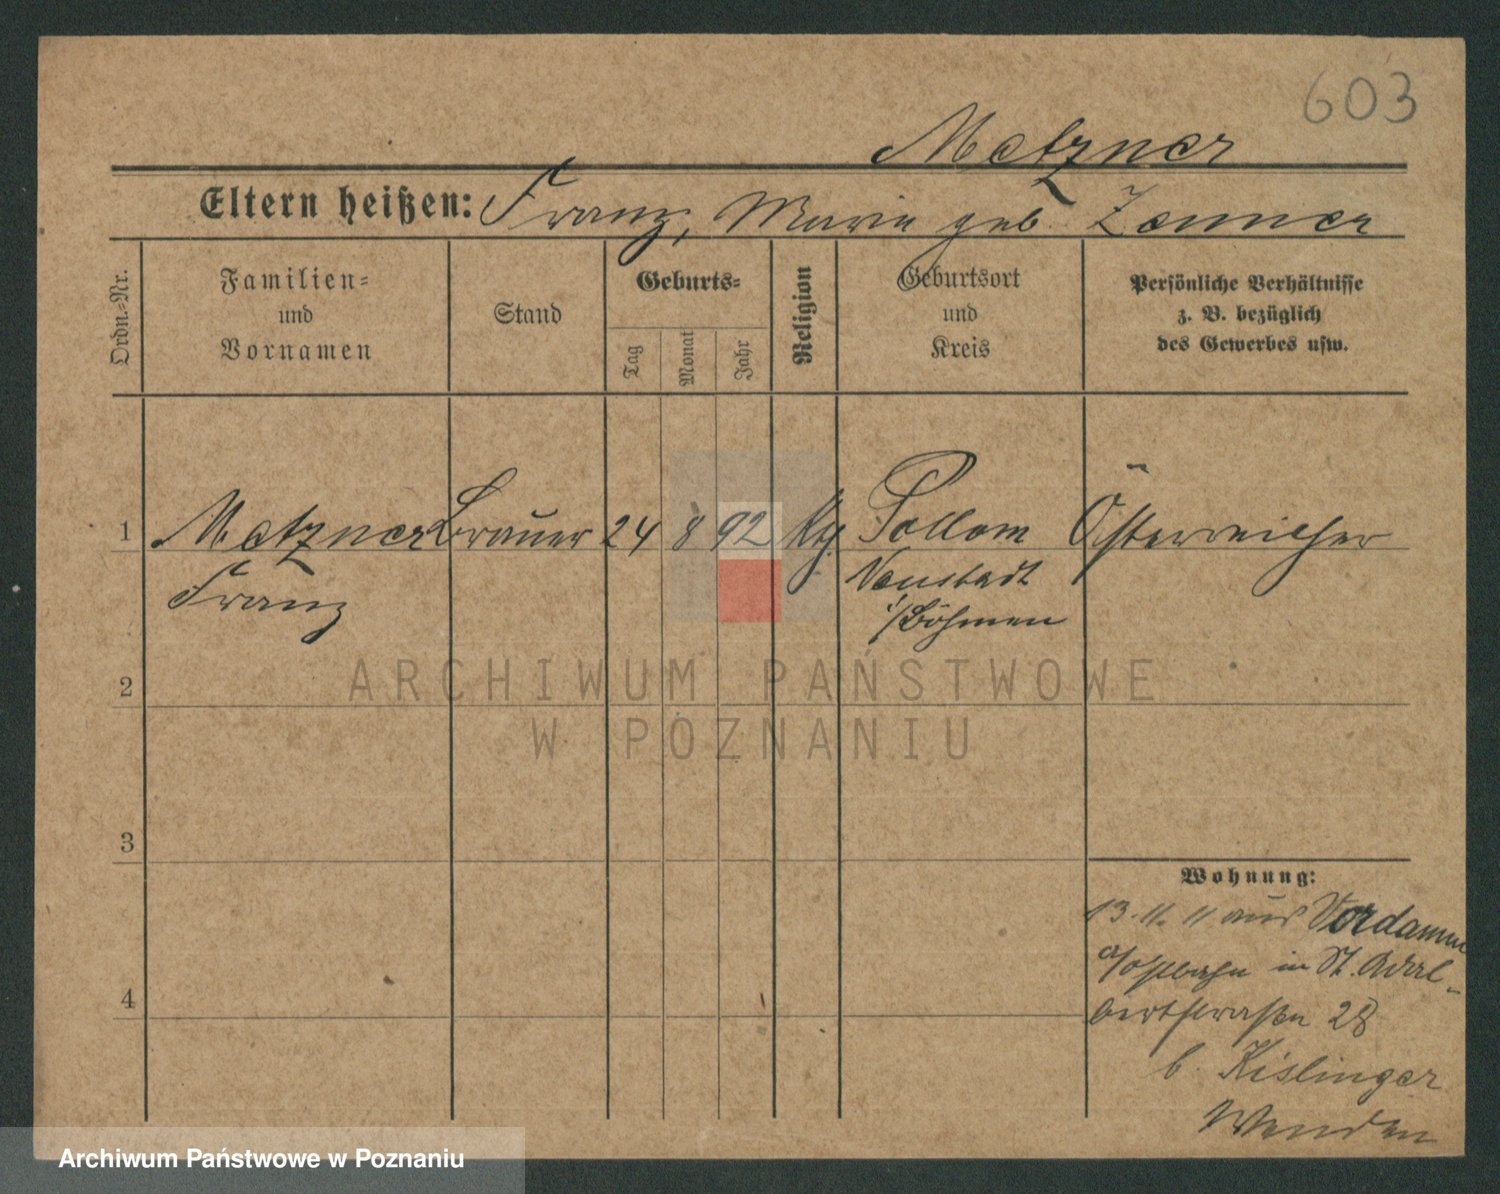 603
Metzner
Eltern heißen: Franz, Marie geb. Zenner
Ordn.-Nr.
Familien-
und
Vornamen
Stand
Geburts-
Tag
Monat
Jahr
Religion
Geburtsort
und
Kreis
Persönliche Verhältnisse
z. B. bezüglich
des Gewerbes usw.
1 Metzner Brauer 24 8 92 Kth Pollom Österreicher
Franz Neustadt
i/Böhmen
2
ARCHIWUM PAŃSTWOWE
W POZNANIU
3
Wohnung:
13.11.11 aus Vordamm
a/Ostbahn in St. Adal-
bertstraßen 28
b. Kislinger
4
Archiwum Państwowe w Poznaniu